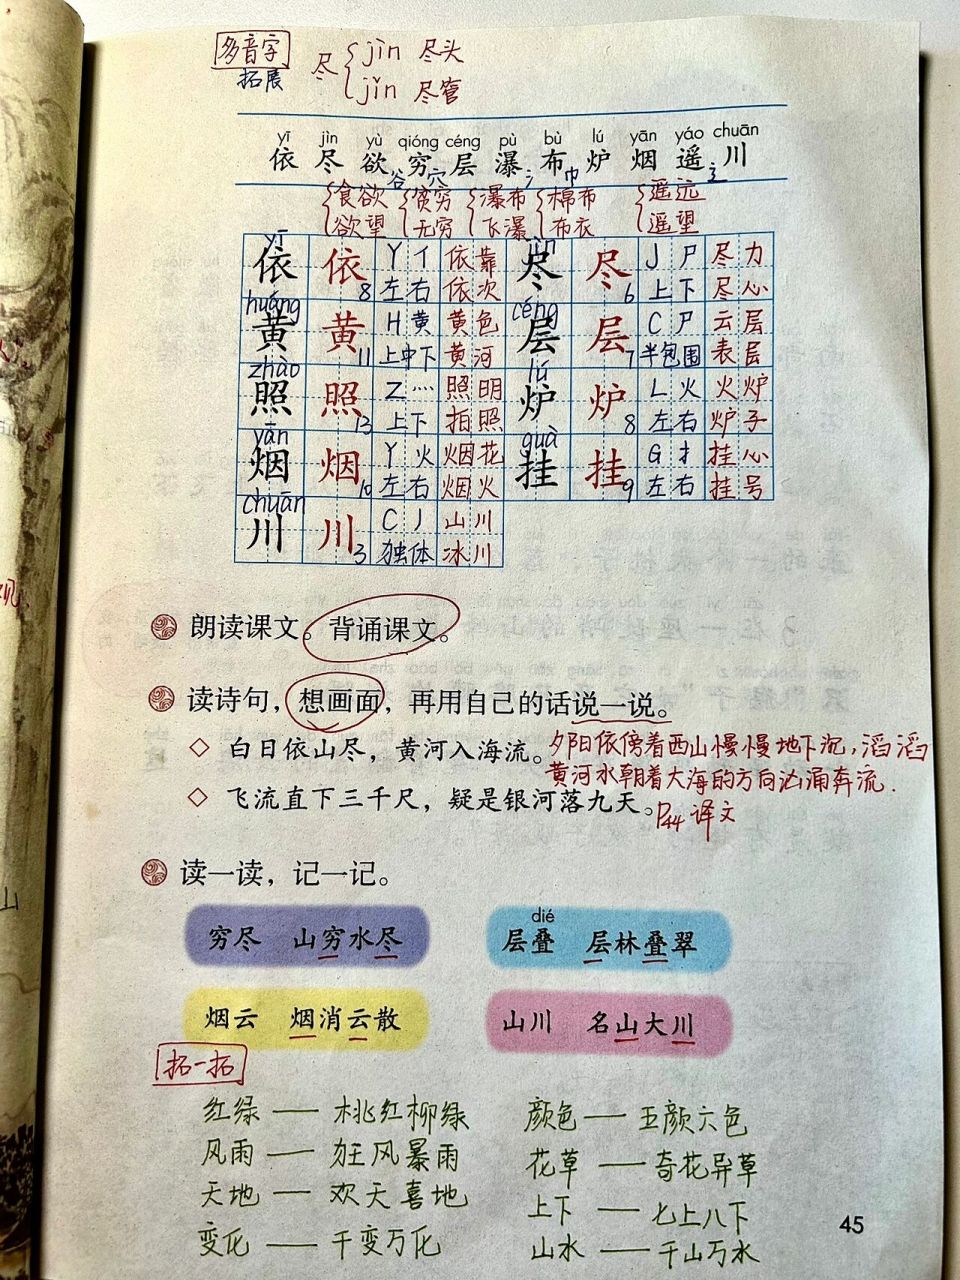 多音字
拓展
尽 jìn 尽头
jǐn 尽管
yī jìn yù qióng céng pù bù lú yān yáo chuān
依 尽 欲 穷 层 瀑 布 炉 烟 遥 川
谷 穴 氵 巾 3
食欲 贫穷 瀑布 棉布 遥远
欲望 无穷 飞瀑 布衣 遥望
yī jìn
依 依 8 Y 亻 依靠 尽 尽 6 J 尸 尽力
左右 依次 上下 尽心
huáng céng
黄 黄 11 H 黄 黄色 层 层 7 C 尸 云层
上中下 黄河 半包围 表层
zhào lú
照 照 13 Z 灬 照明 炉 炉 8 L 火 火炉
上下 拍照 左右 炉子
yān guà
烟 烟 10 Y 火 烟花 挂 挂 9 G 扌 挂心
左右 烟火 左右 挂号
chuān
川 川 3 C 丿 山川
独体 冰川
朗读课文。背诵课文。
读诗句，想画面，再用自己的话说一说。
◇ 白日依山尽，黄河入海流。
夕阳依傍着西山慢慢地下沉，滔滔
黄河水朝着大海的方向汹涌奔流.
◇ 飞流直下三千尺，疑是银河落九天。
P44 译文
读一读，记一记。
dié
穷尽 山穷水尽 层叠 层林叠翠
烟云 烟消云散 山川 名山大川
拓一拓
红绿 — 桃红柳绿 颜色 — 五颜六色
风雨 — 狂风暴雨 花草 — 奇花异草
天地 — 欢天喜地 上下 — 七上八下
变化 — 千变万化 山水 — 千山万水
45